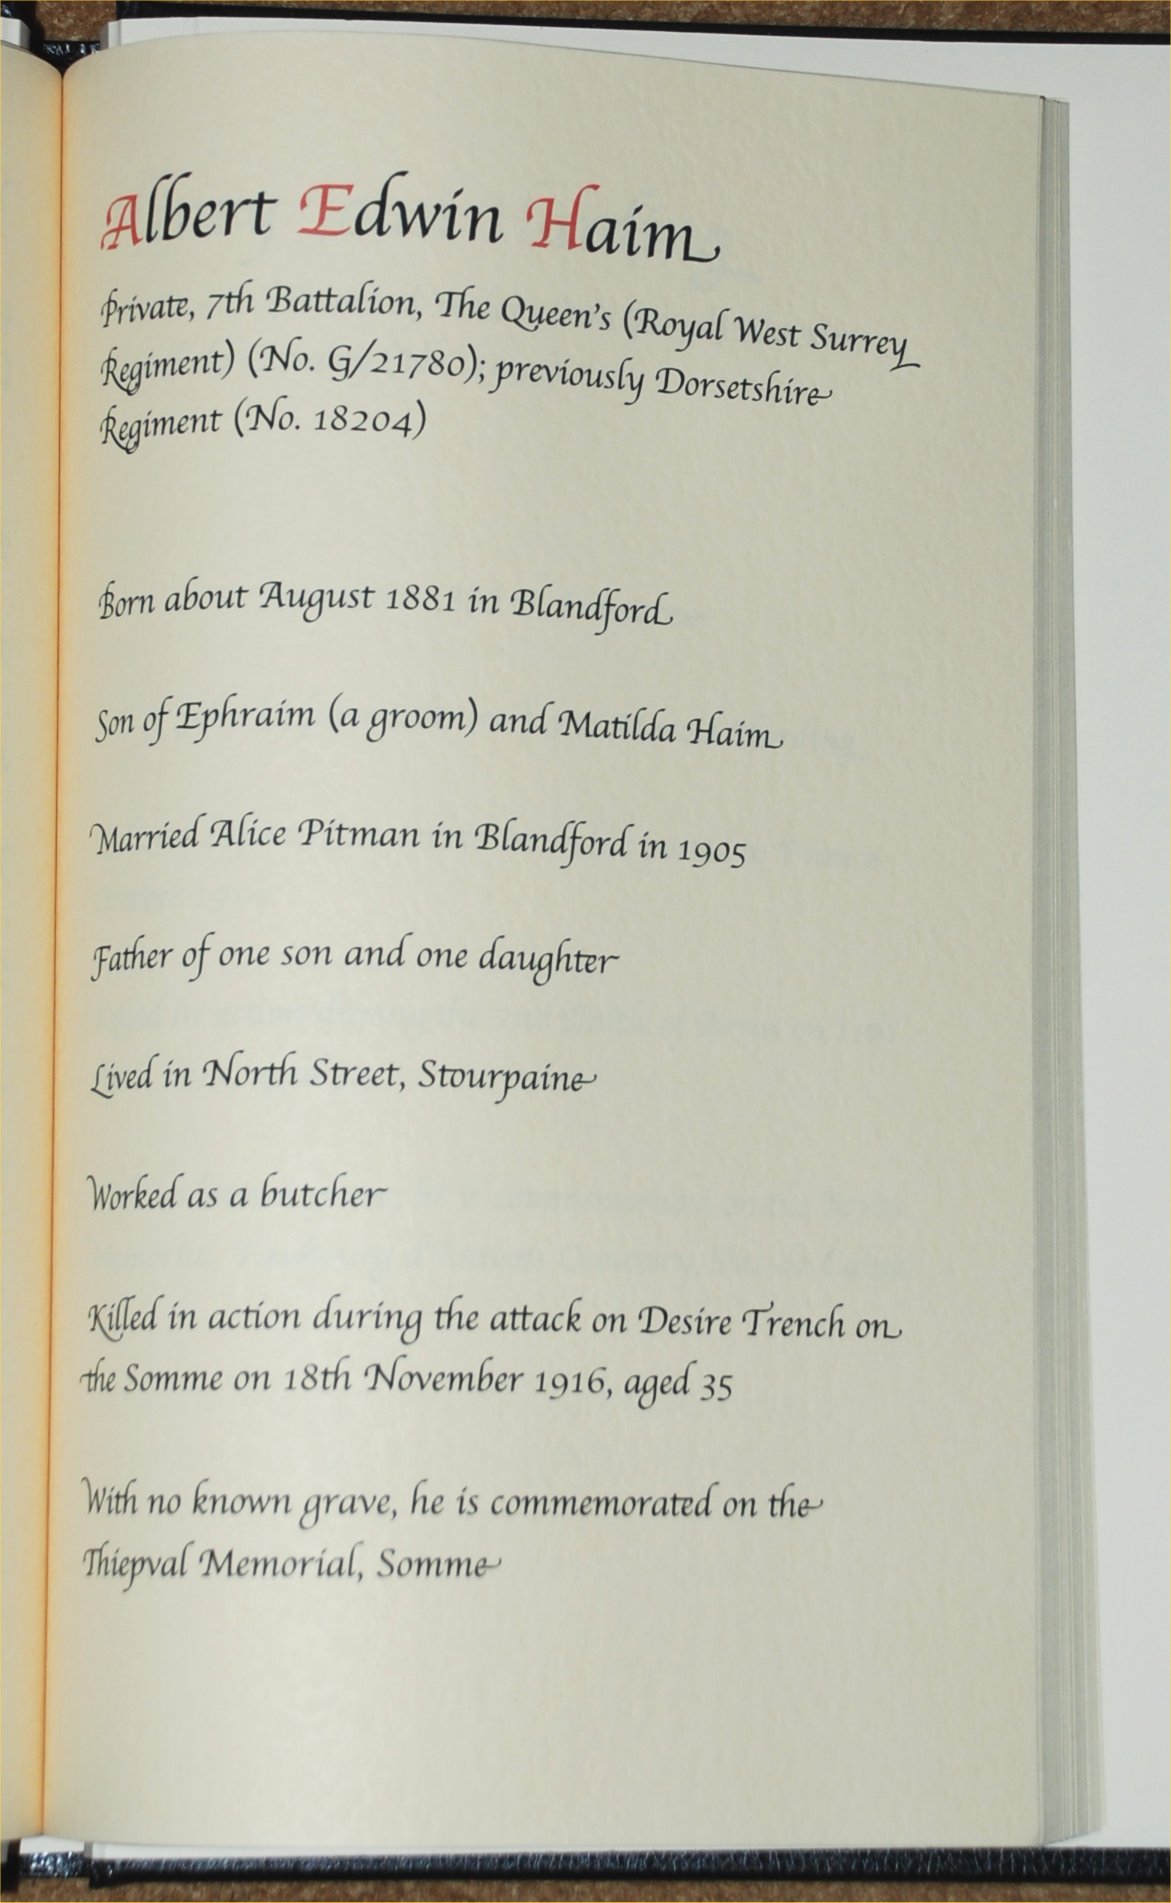 Albert Edwin Haim
Private, 7th Battalion, The Queen's (Royal West Surrey
Regiment) (No. G/21780); previously Dorsetshire
Regiment (No. 18204)
Born about August 1881 in Blandford
Son of Ephraim (a groom) and Matilda Haim
Married Alice Pitman in Blandford in 1905
Father of one son and one daughter
Lived in North Street, Stourpaine
Worked as a butcher
Killed in action during the attack on Desire Trench on
the Somme on 18th November 1916, aged 35
With no known grave, he is commemorated on the
Thiepval Memorial, Somme